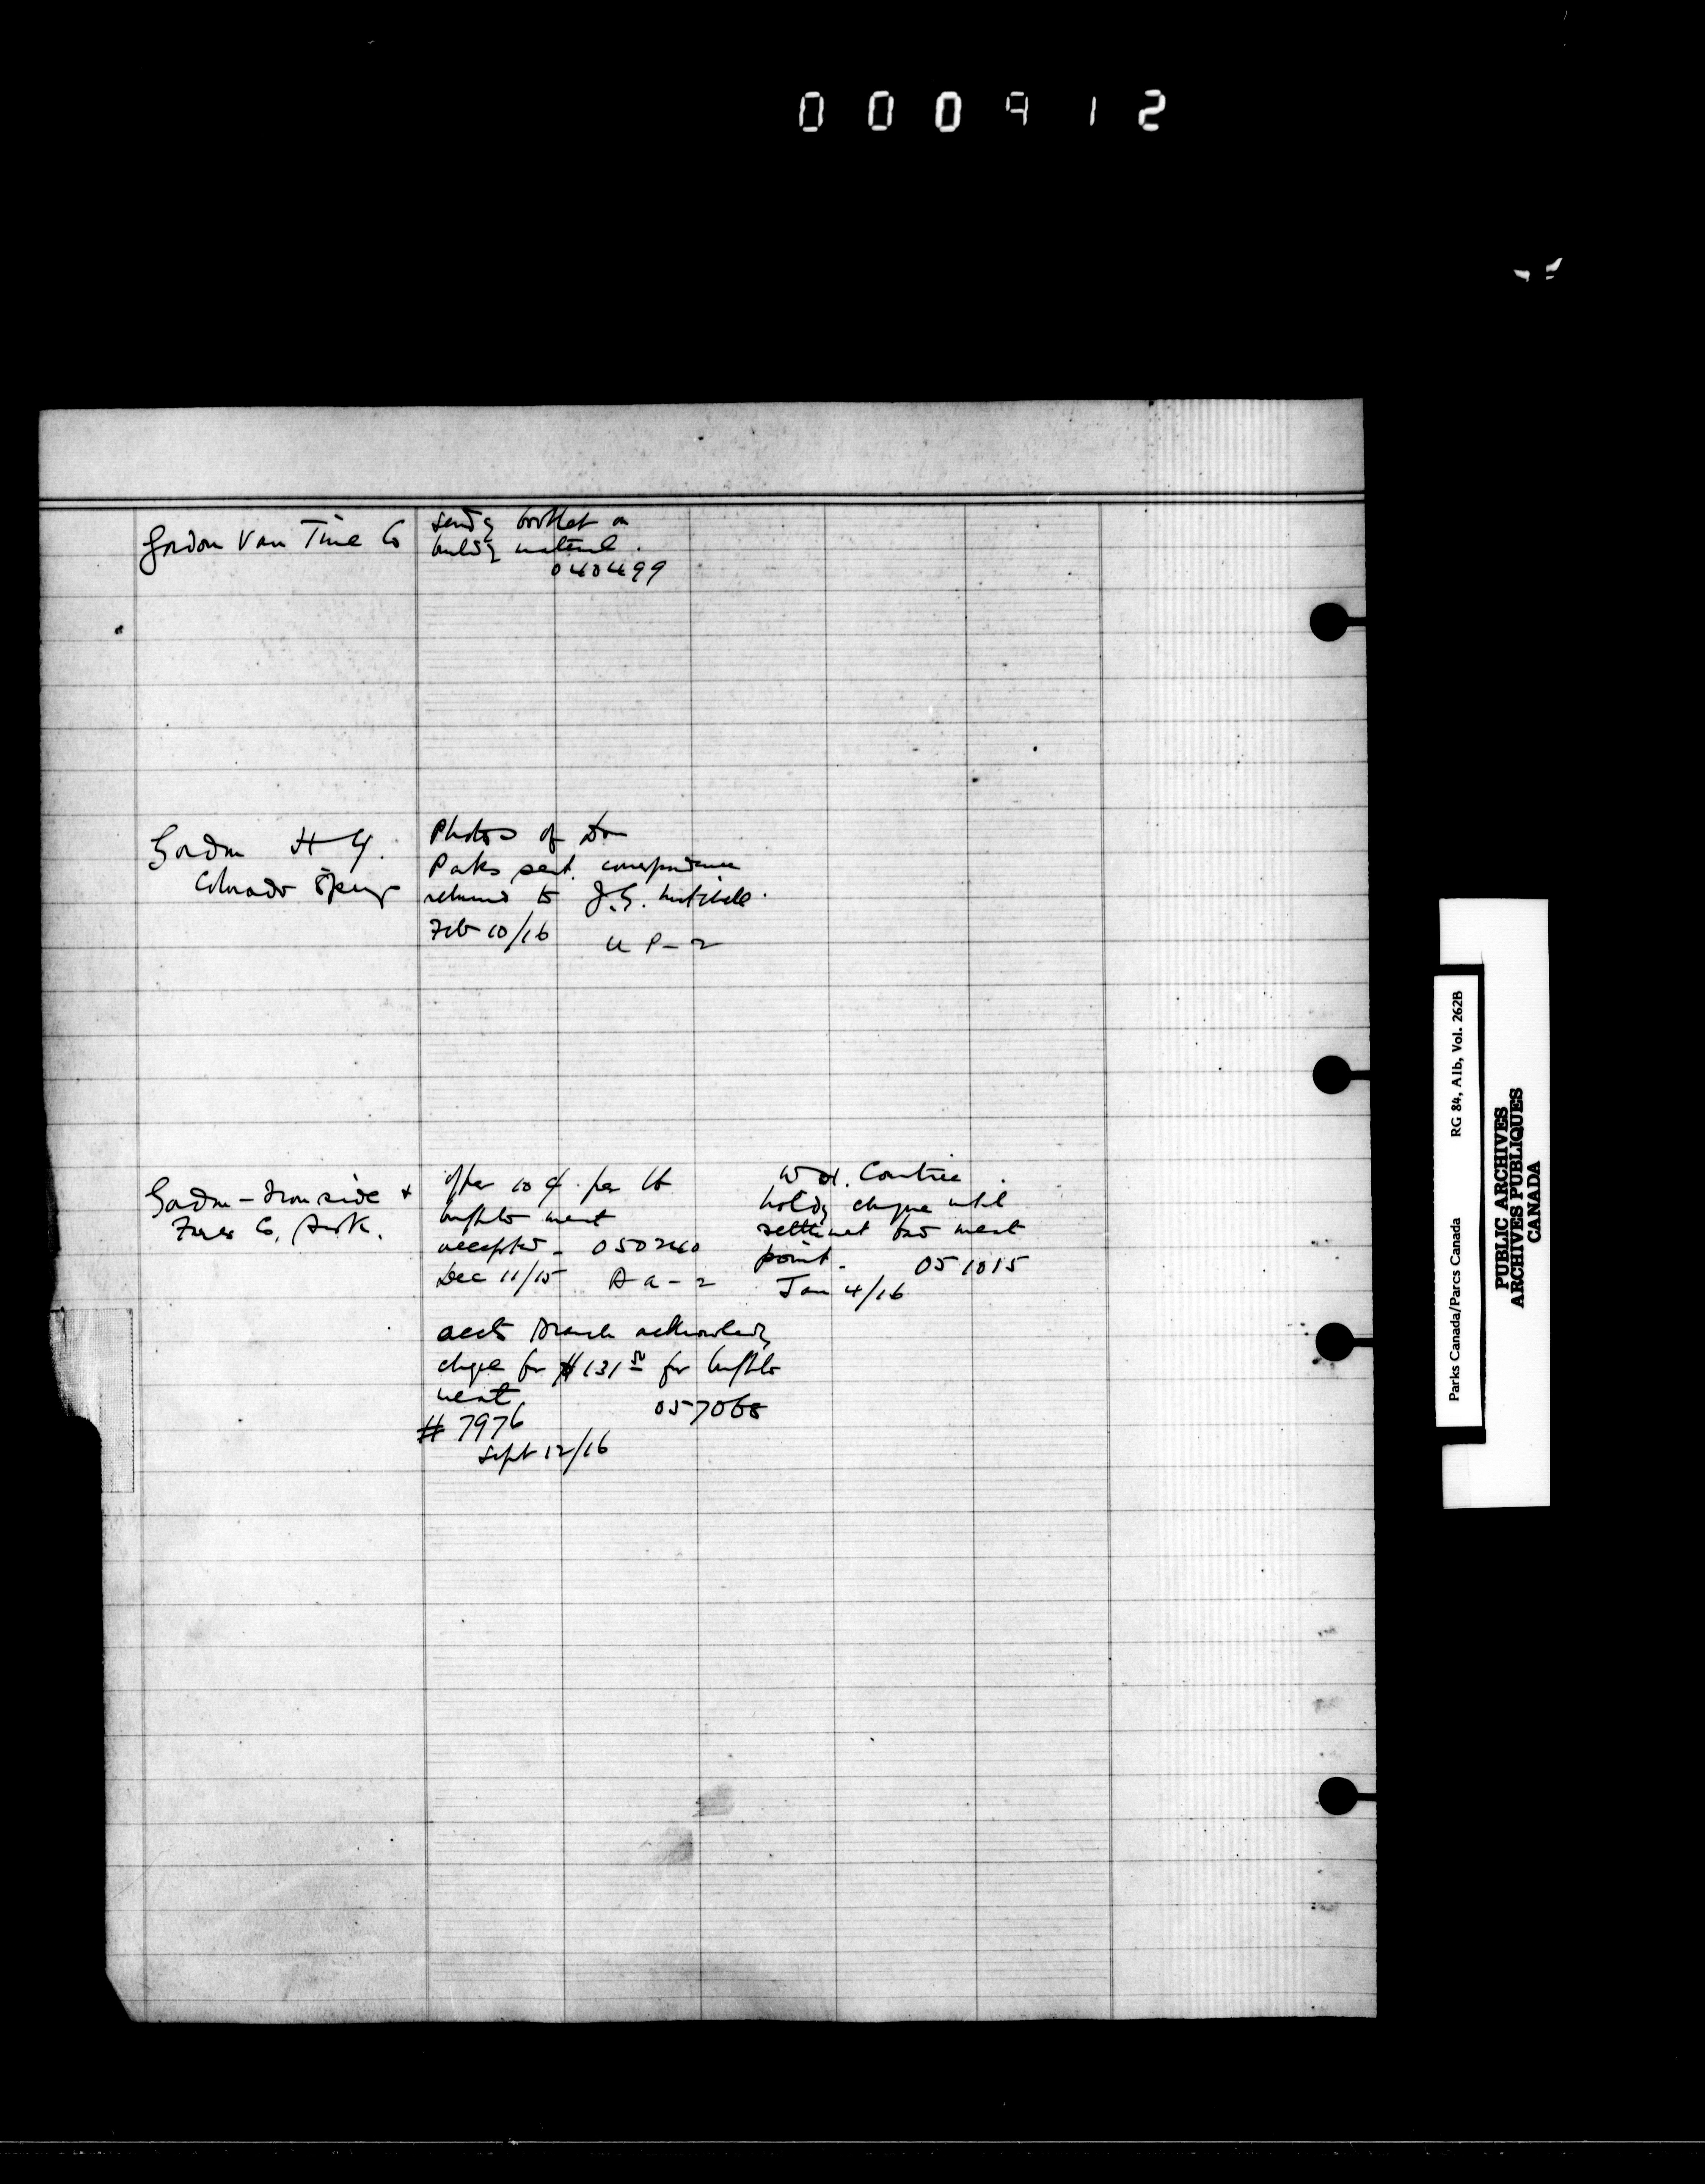 000912
Gordon Van Tine Co
sendg booklet on
buildg material.
040499
Gordon H Y.
Colorado Springs
Photos of Dom
Parks sent. correspondence
returned to J.S.
Feb 10/16 U P-2
Gordon-Ironside &
Fares Co,
offer 10 ¢ per lb
buffalo meat
accepted - 050240
Dec 11/15 A a-2
W H.
holdg cheque until
settlement bad meat
point. 051015
Jan 4/16
accts Branch acknowledg
cheque for $131 50 for buffalo
meat
057068
# 7976
Sept 12/16
Parks Canada/Parcs Canada RG 84, A1b, Vol. 262B
PUBLIC ARCHIVES
ARCHIVES PUBLIQUES
CANADA